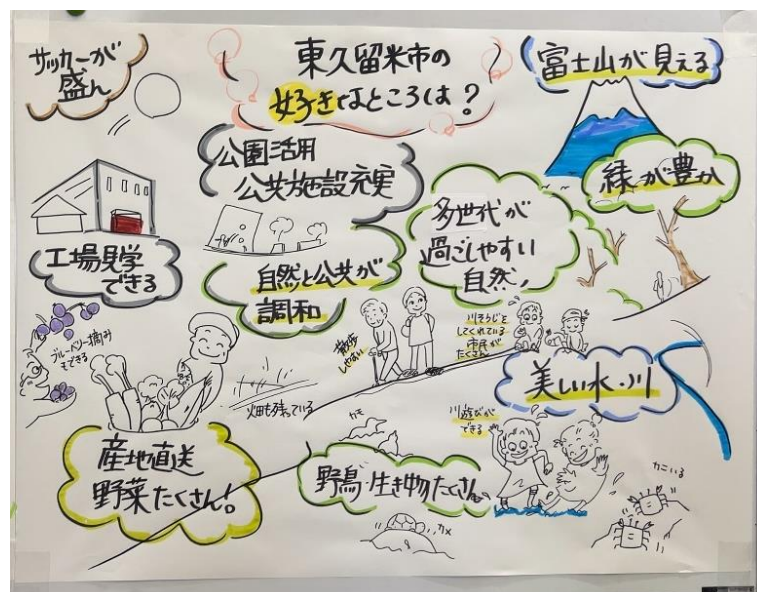 サッカーが
盛ん
東久留米市の
好きなところは？
富士山が見える
公園活用
公共施設充実
緑が豊か
多世代が
過ごしやすい
自然
工場見学
できる
自然と公共が
調和
ブルーベリー摘み
もできる
散歩
しやすい
川そうじを
してくれている
市民が
たくさん
美しい水・川
畑も残っている
カモ
川遊びが
できる
産地直送
野菜たくさん！
野鳥・生き物たくさん
カメ
カニいる